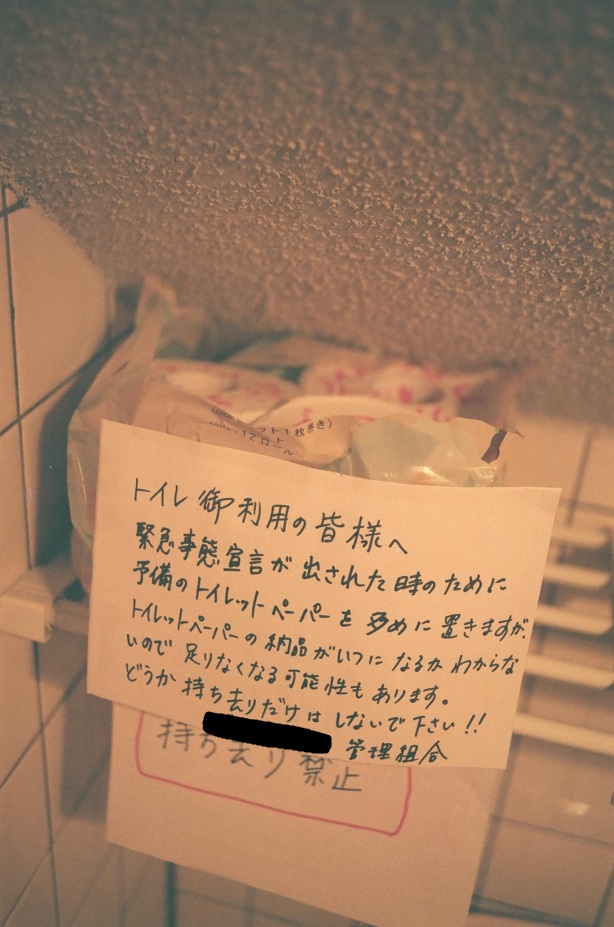 ット1枚巻き)
12ロール
トイレ御利用の皆様へ
緊急事態宣言が出された時のために
予備のトイレットペーパーを多めに置きますが、
トイレットペーパーの納品がいつになるかわからな
いので足りなくなる可能性もあります。
どうか持ち去りだけはしないで下さい!!
管理組合
持ち去り禁止